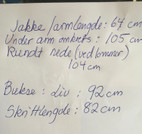 Jakke / armlengde: 64 cm
Under arm omkrets: 105 cm
Rundt nede (ved lommer)
104 cm
Bukse: div: 92cm
Skrittlengde: 82cm